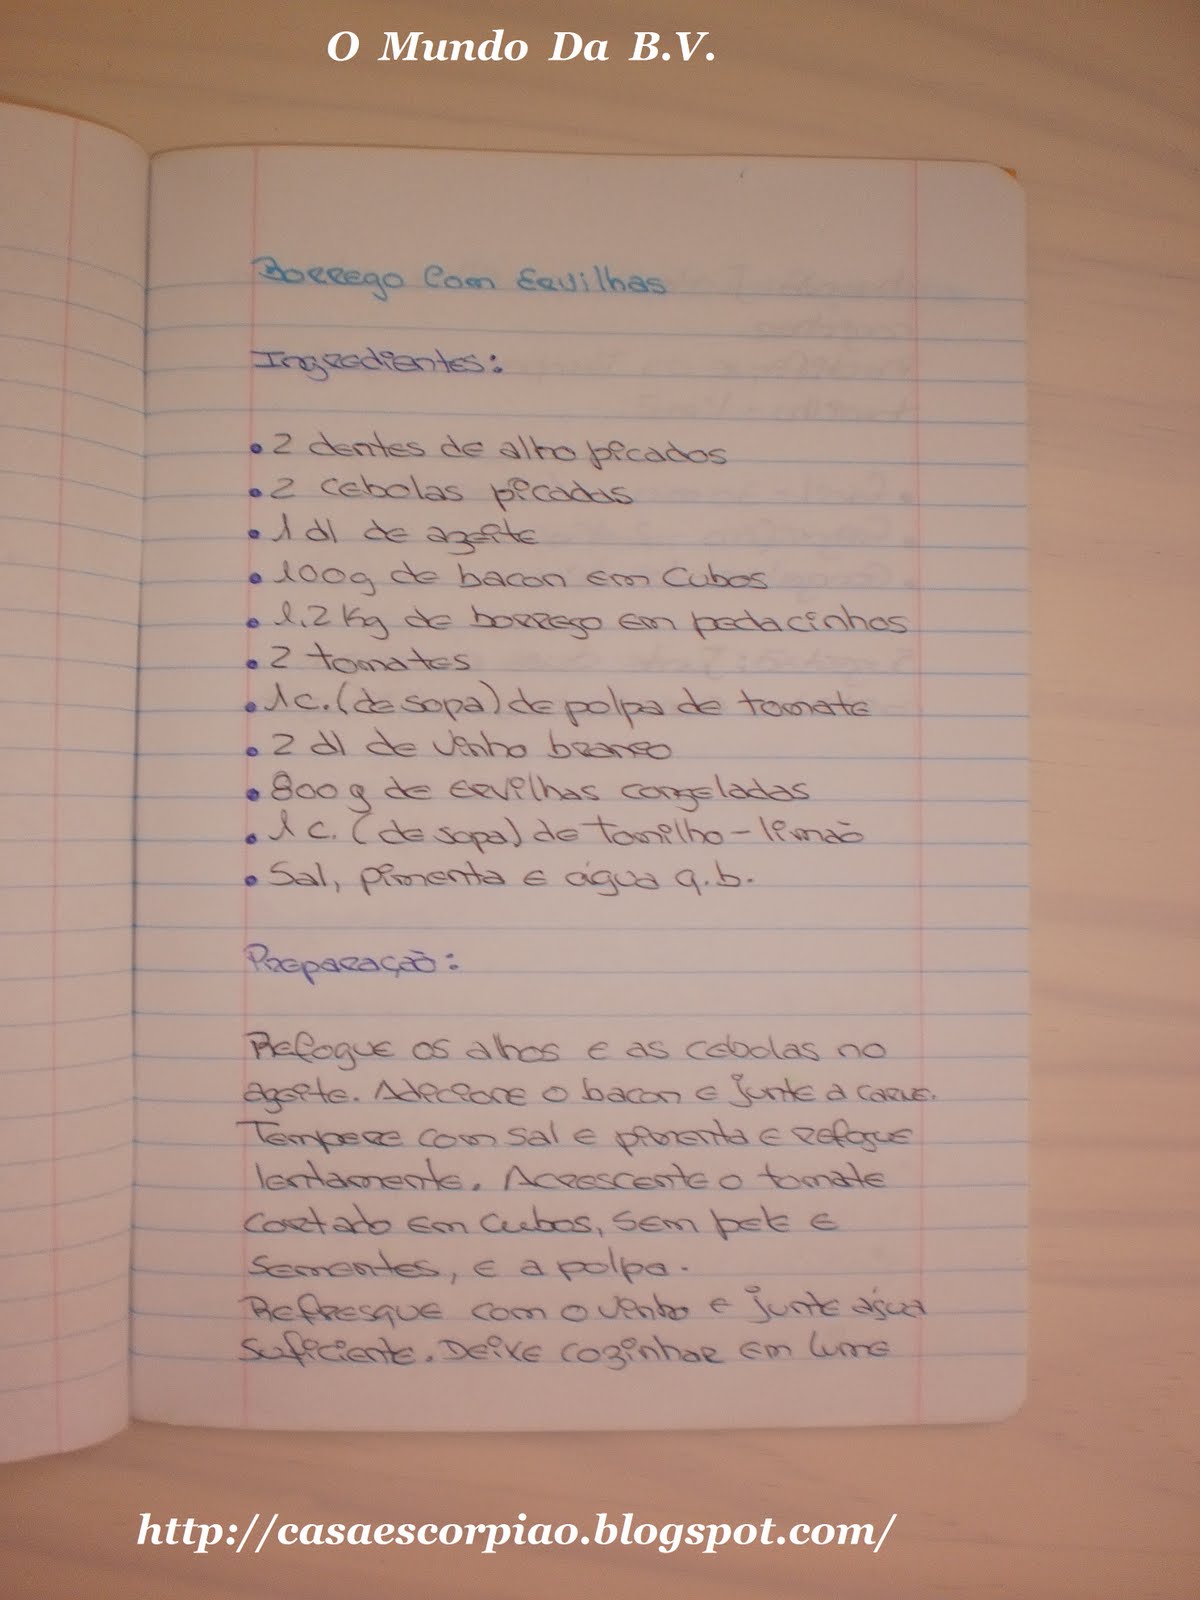 O Mundo Da B.V.
Borrego Com Ervilhas
Ingredientes:
• 2 dentes de alho picados
• 2 cebolas picadas
• 1 dl de azeite
• 100g de bacon em cubos
• 1,2 Kg de borrego em pedacinhos
• 2 tomates
• 1 c. (de sopa) de polpa de tomate
• 2 dl de vinho branco
• 800 g de ervilhas congeladas
• 1 c. (de sopa) de tomilho-limão
• Sal, pimenta e água q.b.
Preparação:
Refogue os alhos e as cebolas no
azeite. Adicione o bacon e junte a carne.
Tempere com sal e pimenta e refogue
lentamente. Acrescente o tomate
cortado em cubos, sem pele e
sementes, e a polpa.
Refresque com o vinho e junte água
suficiente. Deixe cozinhar em lume
http://casaescorpiao.blogspot.com/